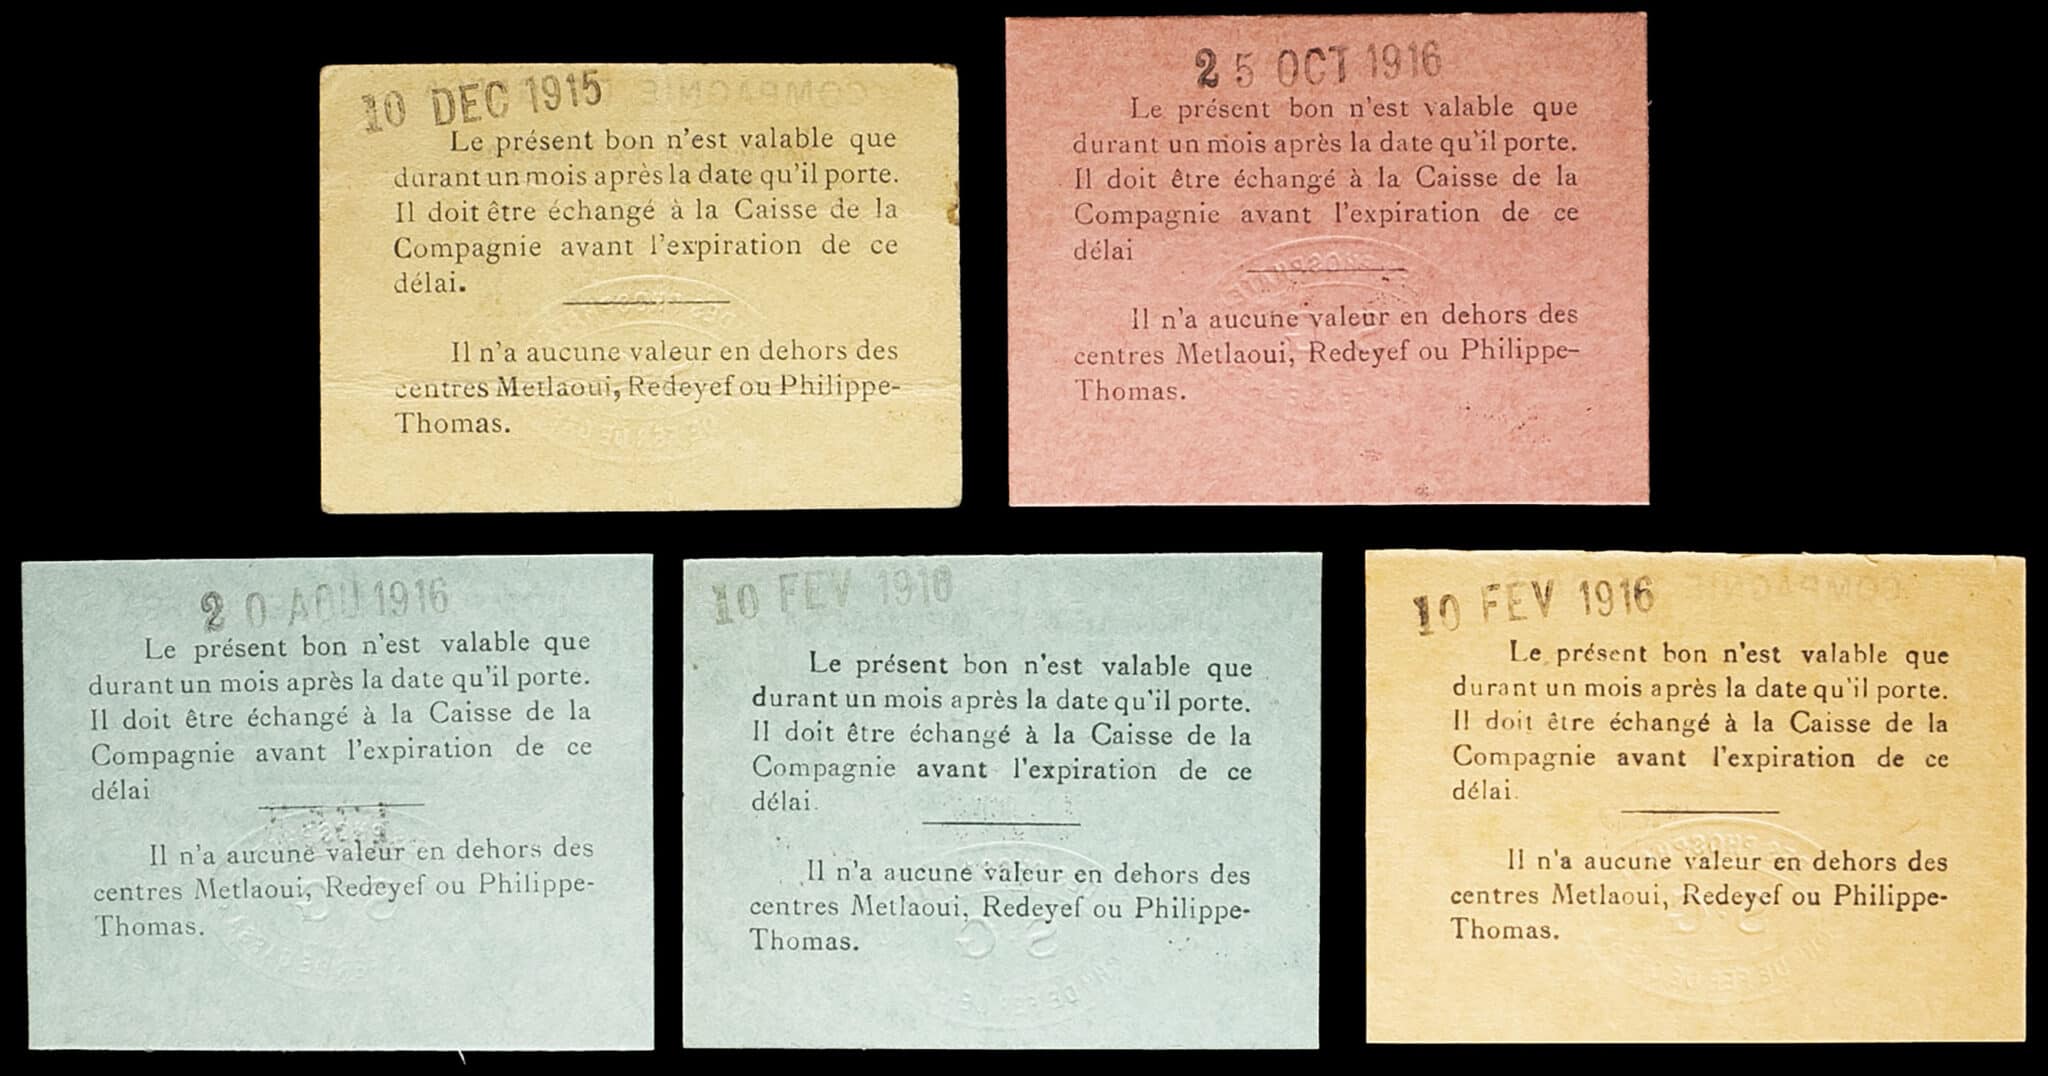 10 DEC 1915
Le présent bon n'est valable que
durant un mois après la date qu'il porte.
Il doit être échangé à la Caisse de la
Compagnie avant l'expiration de ce
délai.
Il n'a aucune valeur en dehors des
centres Metlaoui, Redeyef ou Philippe-
Thomas.
25 OCT 1916
Le présent bon n'est valable que
durant un mois après la date qu'il porte.
Il doit être échangé à la Caisse de la
Compagnie avant l'expiration de ce
délai
Il n'a aucune valeur en dehors des
centres Metlaoui, Redeyef ou Philippe-
Thomas.
20 AOU 1916
Le présent bon n'est valable que
durant un mois après la date qu'il porte.
Il doit être échangé à la Caisse de la
Compagnie avant l'expiration de ce
délai
Il n'a aucune valeur en dehors des
centres Metlaoui, Redeyef ou Philippe-
Thomas.
10 FEV 1916
Le présent bon n'est valable que
durant un mois après la date qu'il porte.
Il doit être échangé à la Caisse de la
Compagnie avant l'expiration de ce
délai.
Il n'a aucune valeur en dehors des
centres Metlaoui, Redeyef ou Philippe-
Thomas.
10 FEV 1916
Le présent bon n'est valable que
durant un mois après la date qu'il porte.
Il doit être échangé à la Caisse de la
Compagnie avant l'expiration de ce
délai.
Il n'a aucune valeur en dehors des
centres Metlaoui, Redeyef ou Philippe-
Thomas.